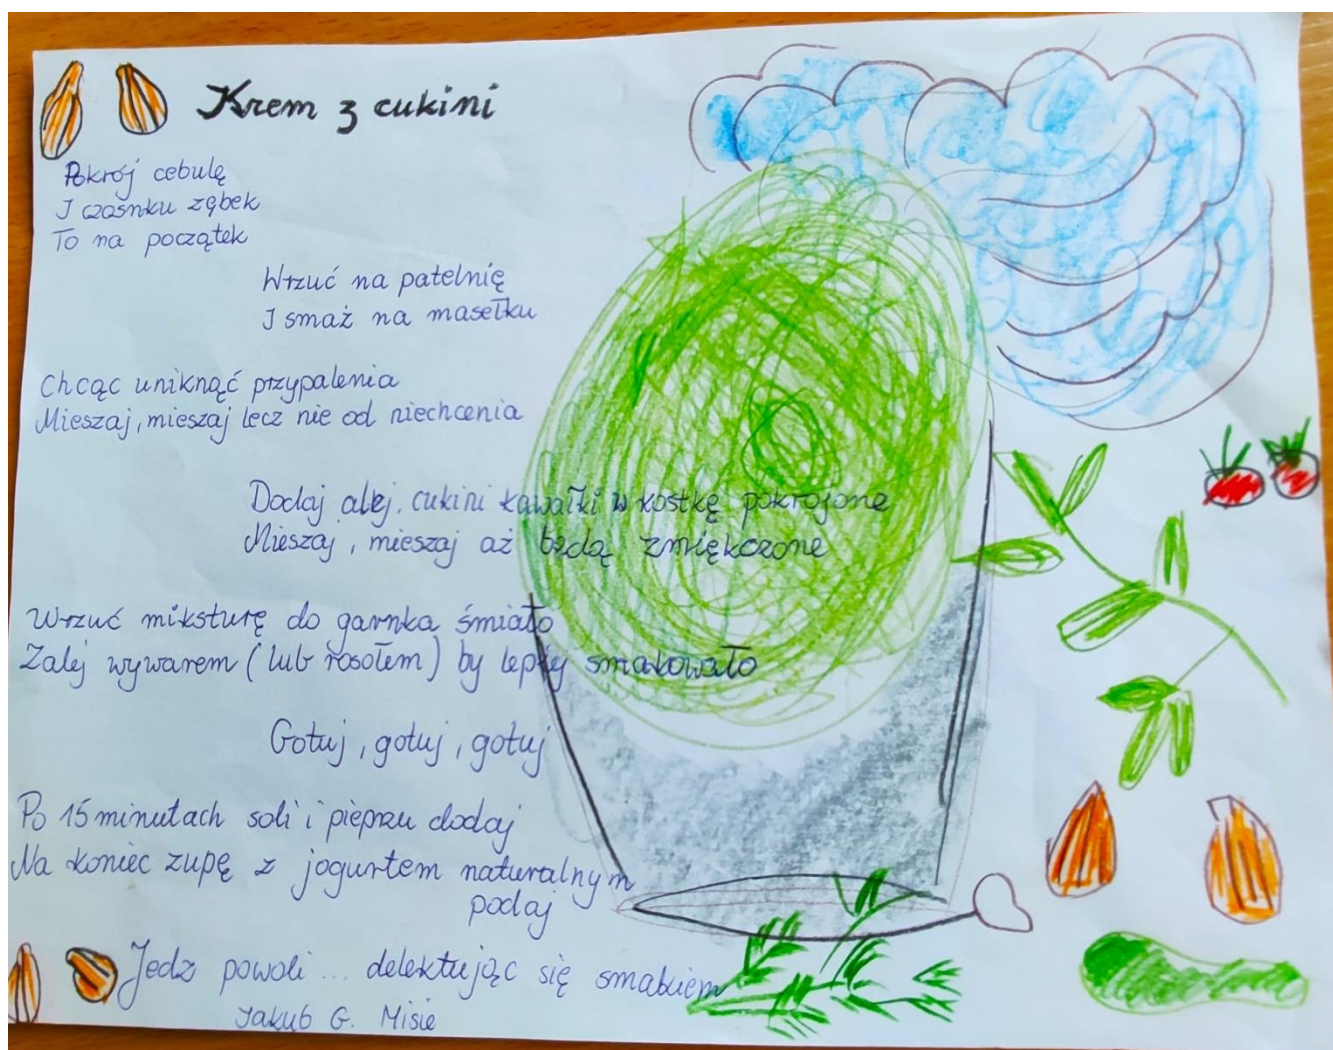 Krem z cukini
Pokrój cebulę
I czosnku ząbek
To na początek
Wrzuć na patelnię
I smaż na masełku
Chcąc uniknąć przypalenia
Mieszaj, mieszaj lecz nie od niechcenia
Dodaj alej, cukini kawałki w kostkę pokrojone
Mieszaj, mieszaj aż będą zmiękczone
Wrzuć miksturę do garnka śmiało
Zalej wywarem (lub rosołem) by lepiej smakowało
Gotuj, gotuj, gotuj
Po 15 minutach soli i pieprzu dodaj
Na koniec zupę z jogurtem naturalnym
podaj
Jedz powoli... delektując się smakiem
Jakub G. Misie